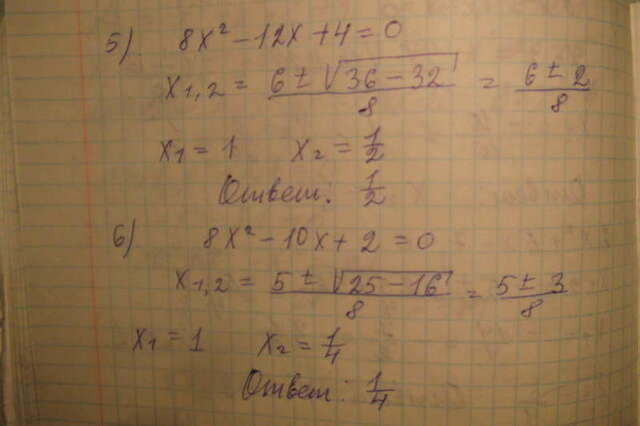 5). 8x² - 12x + 4 = 0
x₁,₂ = (6 ± √(36 - 32))/8 = (6 ± 2)/8
x₁ = 1 x₂ = 1/2
Ответ: 1/2
6) 8x² - 10x + 2 = 0
x₁,₂ = (5 ± √(25 - 16))/8 = (5 ± 3)/8
x₁ = 1 x₂ = 1/4
Ответ: 1/4